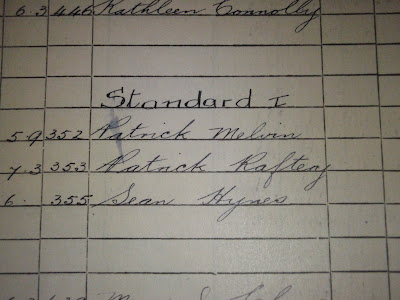 6.3 446 Kathleen Connolly
Standard I
5.9 352 Patrick Melvin
7.3 353 Patrick Raftery
6. 355 Sean Hynes